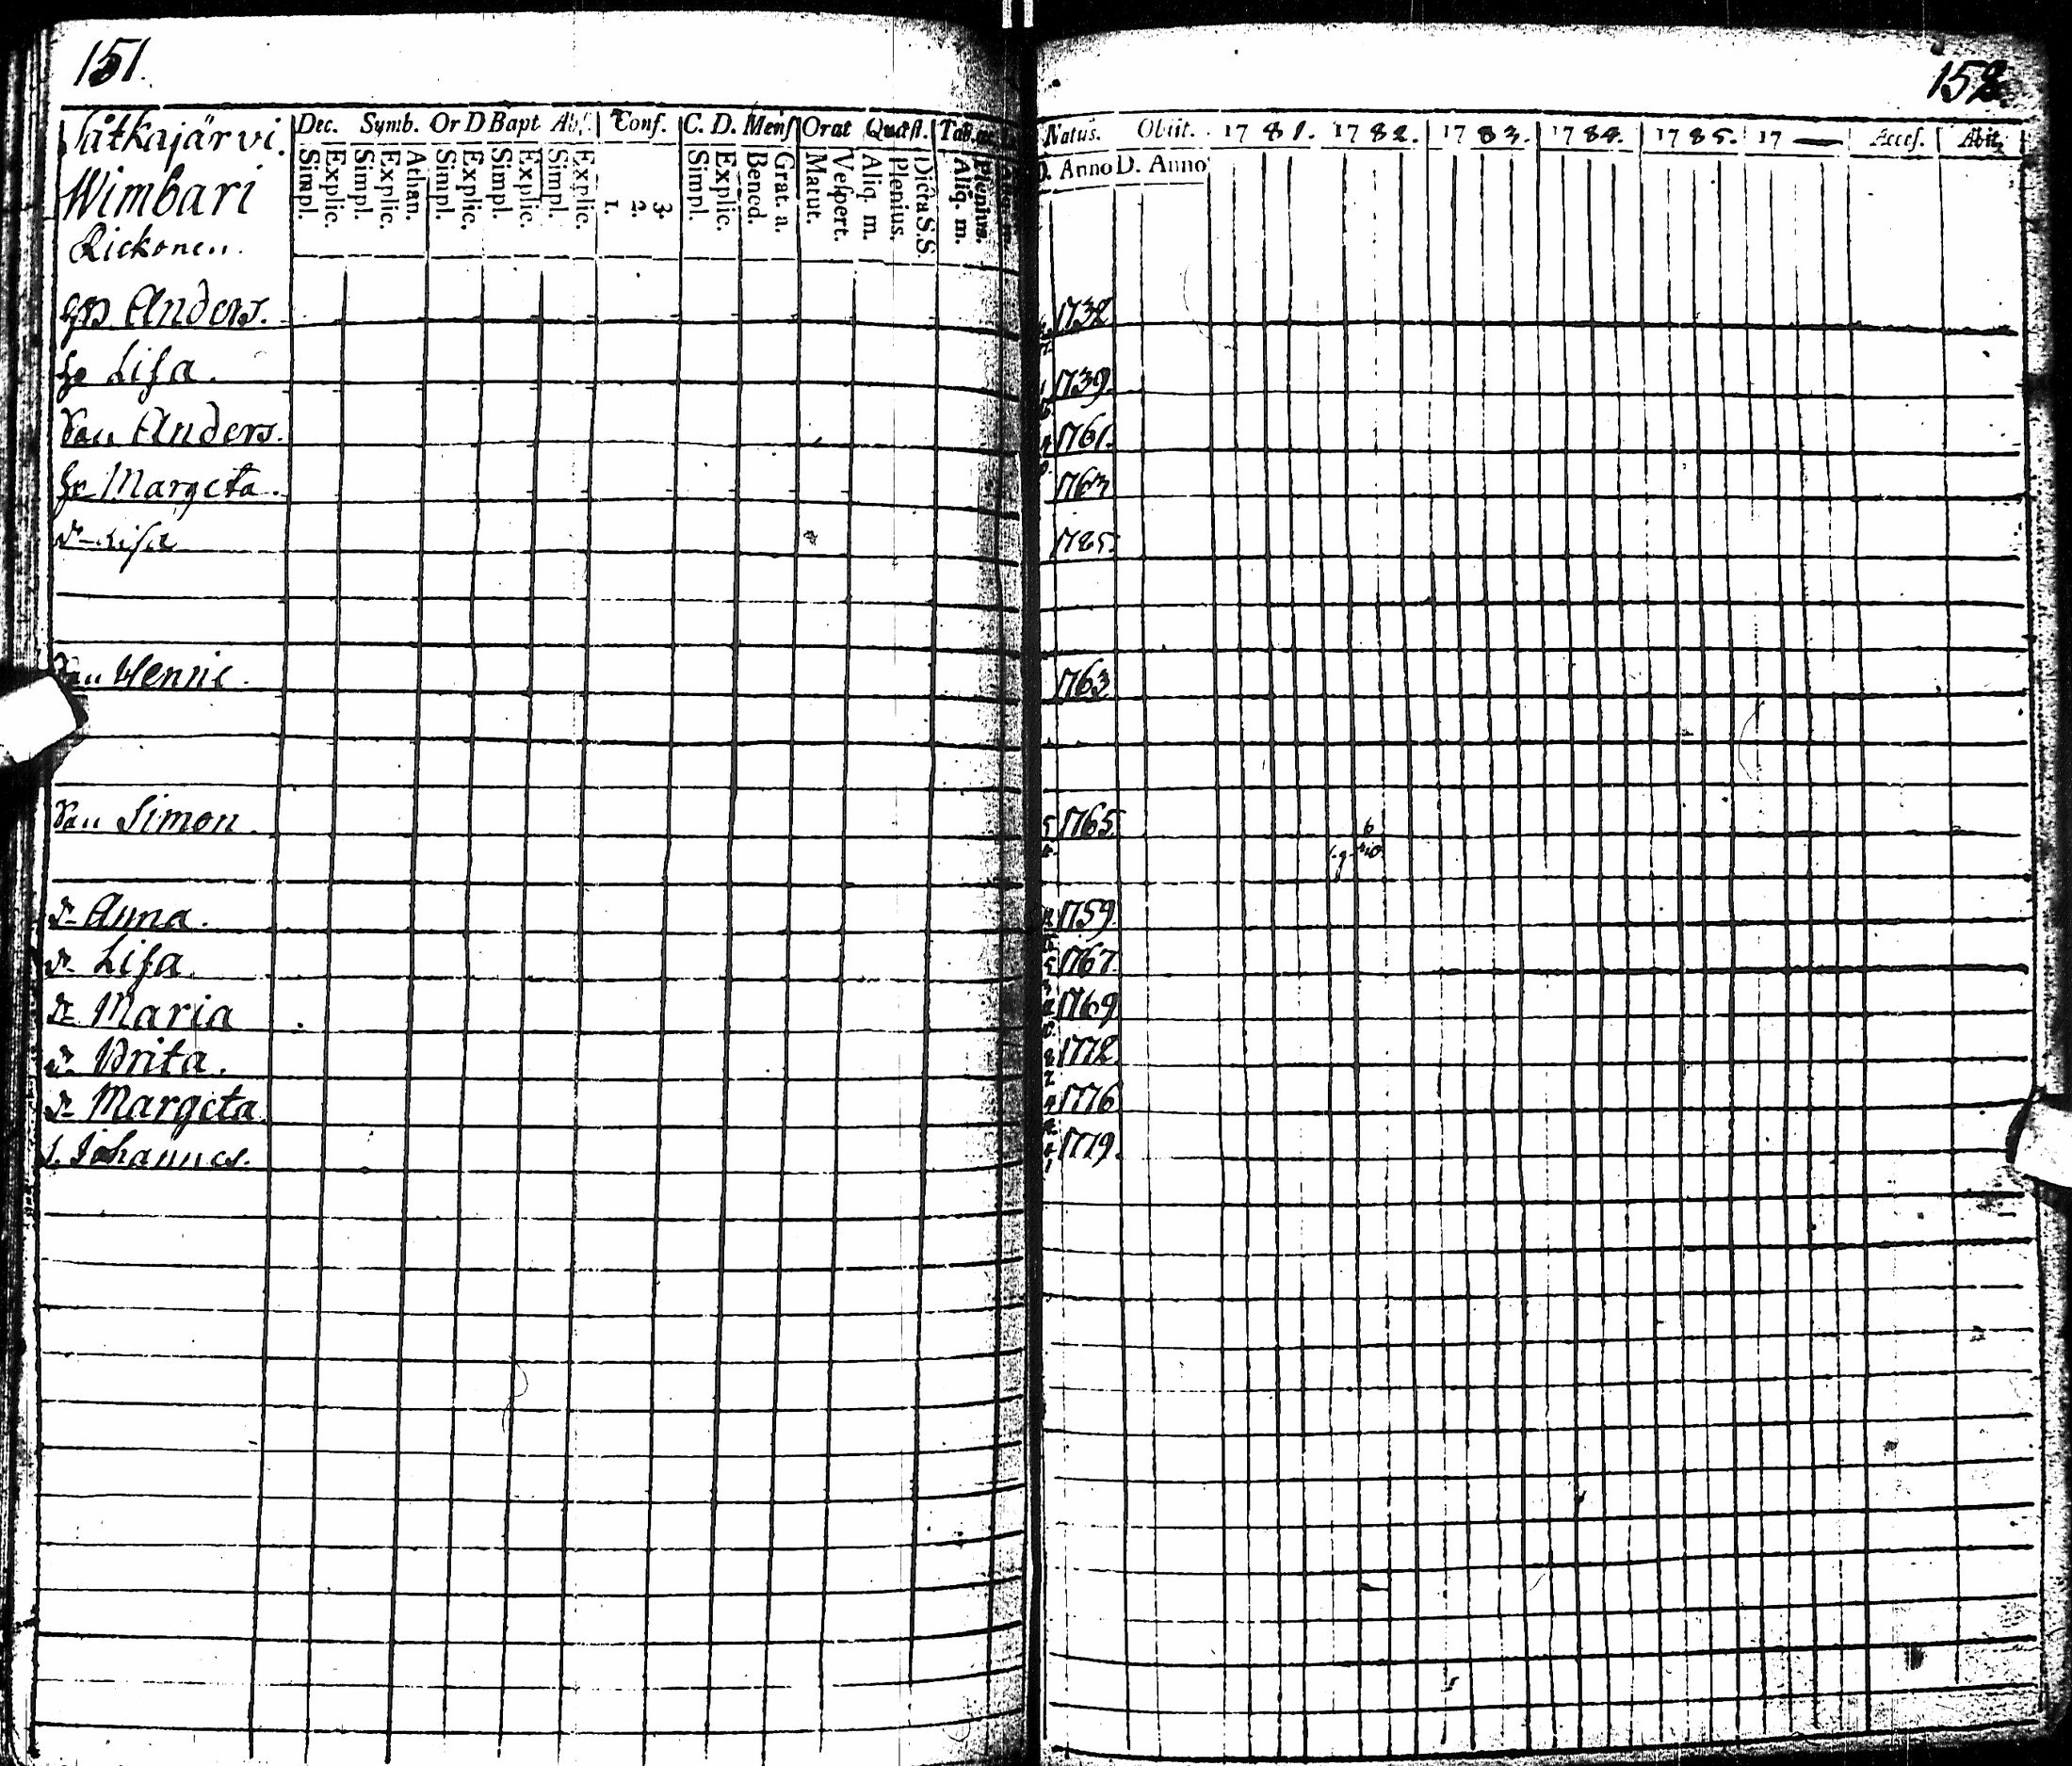 151.
Dec. Symb. Or D Bapt Abs. Conf. C. D. Mens Orat Quæst. Tab.
Simpl. Explic. Simpl. Explic. Athan. Simpl. Explic. Simpl. Explic. Simpl. Explic. 1. 2. 3. Simpl. Explic. Bened. Grat. a. Matut. Vespert. Aliq. m. Plenius. Dicta S.S. Aliq. m. Plenius.
Såtkajärvi.
Wimbari
Rickonen.
Anders.
Lisa.
Anders.
Margeta.
Lisa
Henric.
Simon.
Anna.
Lisa
Maria
Brita.
Margeta
Johannes.
152.
Natus. Obiit. 1781. 1782. 1783. 1784. 1785. 17— Acces. Abit
D. Anno D. Anno
1732
1739.
1761.
1763
1785.
1763
1765.
6
1759.
1767.
1769
1772
1776
1779.